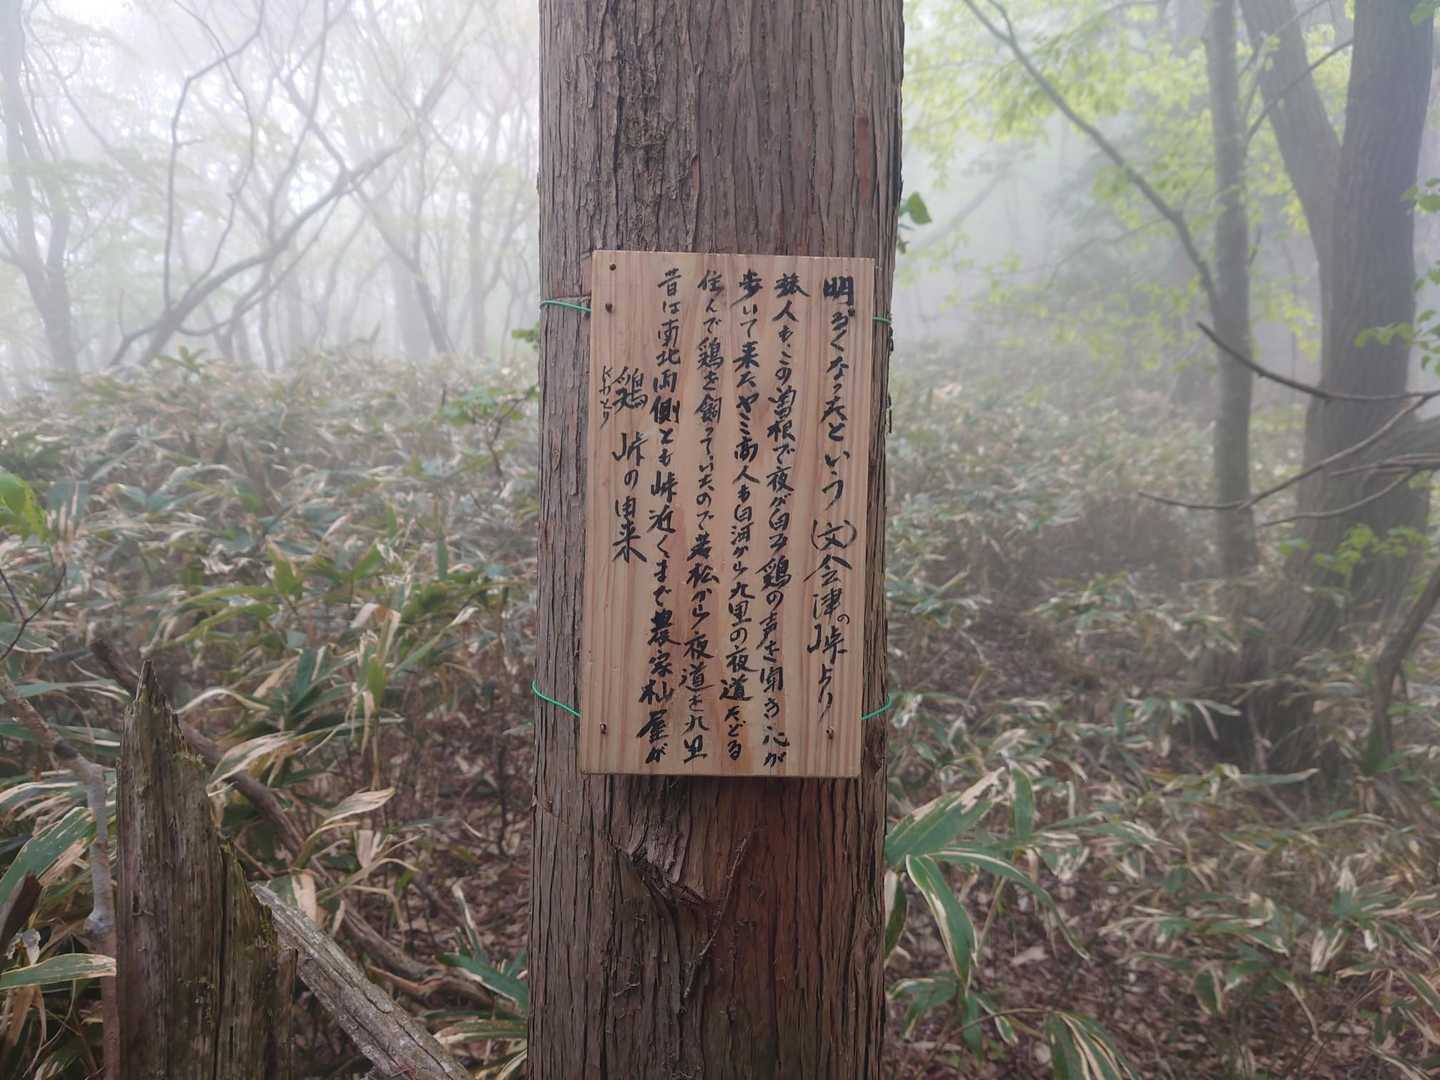 にわとり
鶏峠の由来
昔は南北両側とも峠近くまで農家杣屋が
住んで鶏を飼っていたので若松から夜道を九里
歩いて来たヤミ商人も白河から九里の夜道たどる
旅人も、この曽根で夜が白み鶏の声を聞き心が
明るくなったという (文)会津の峠より